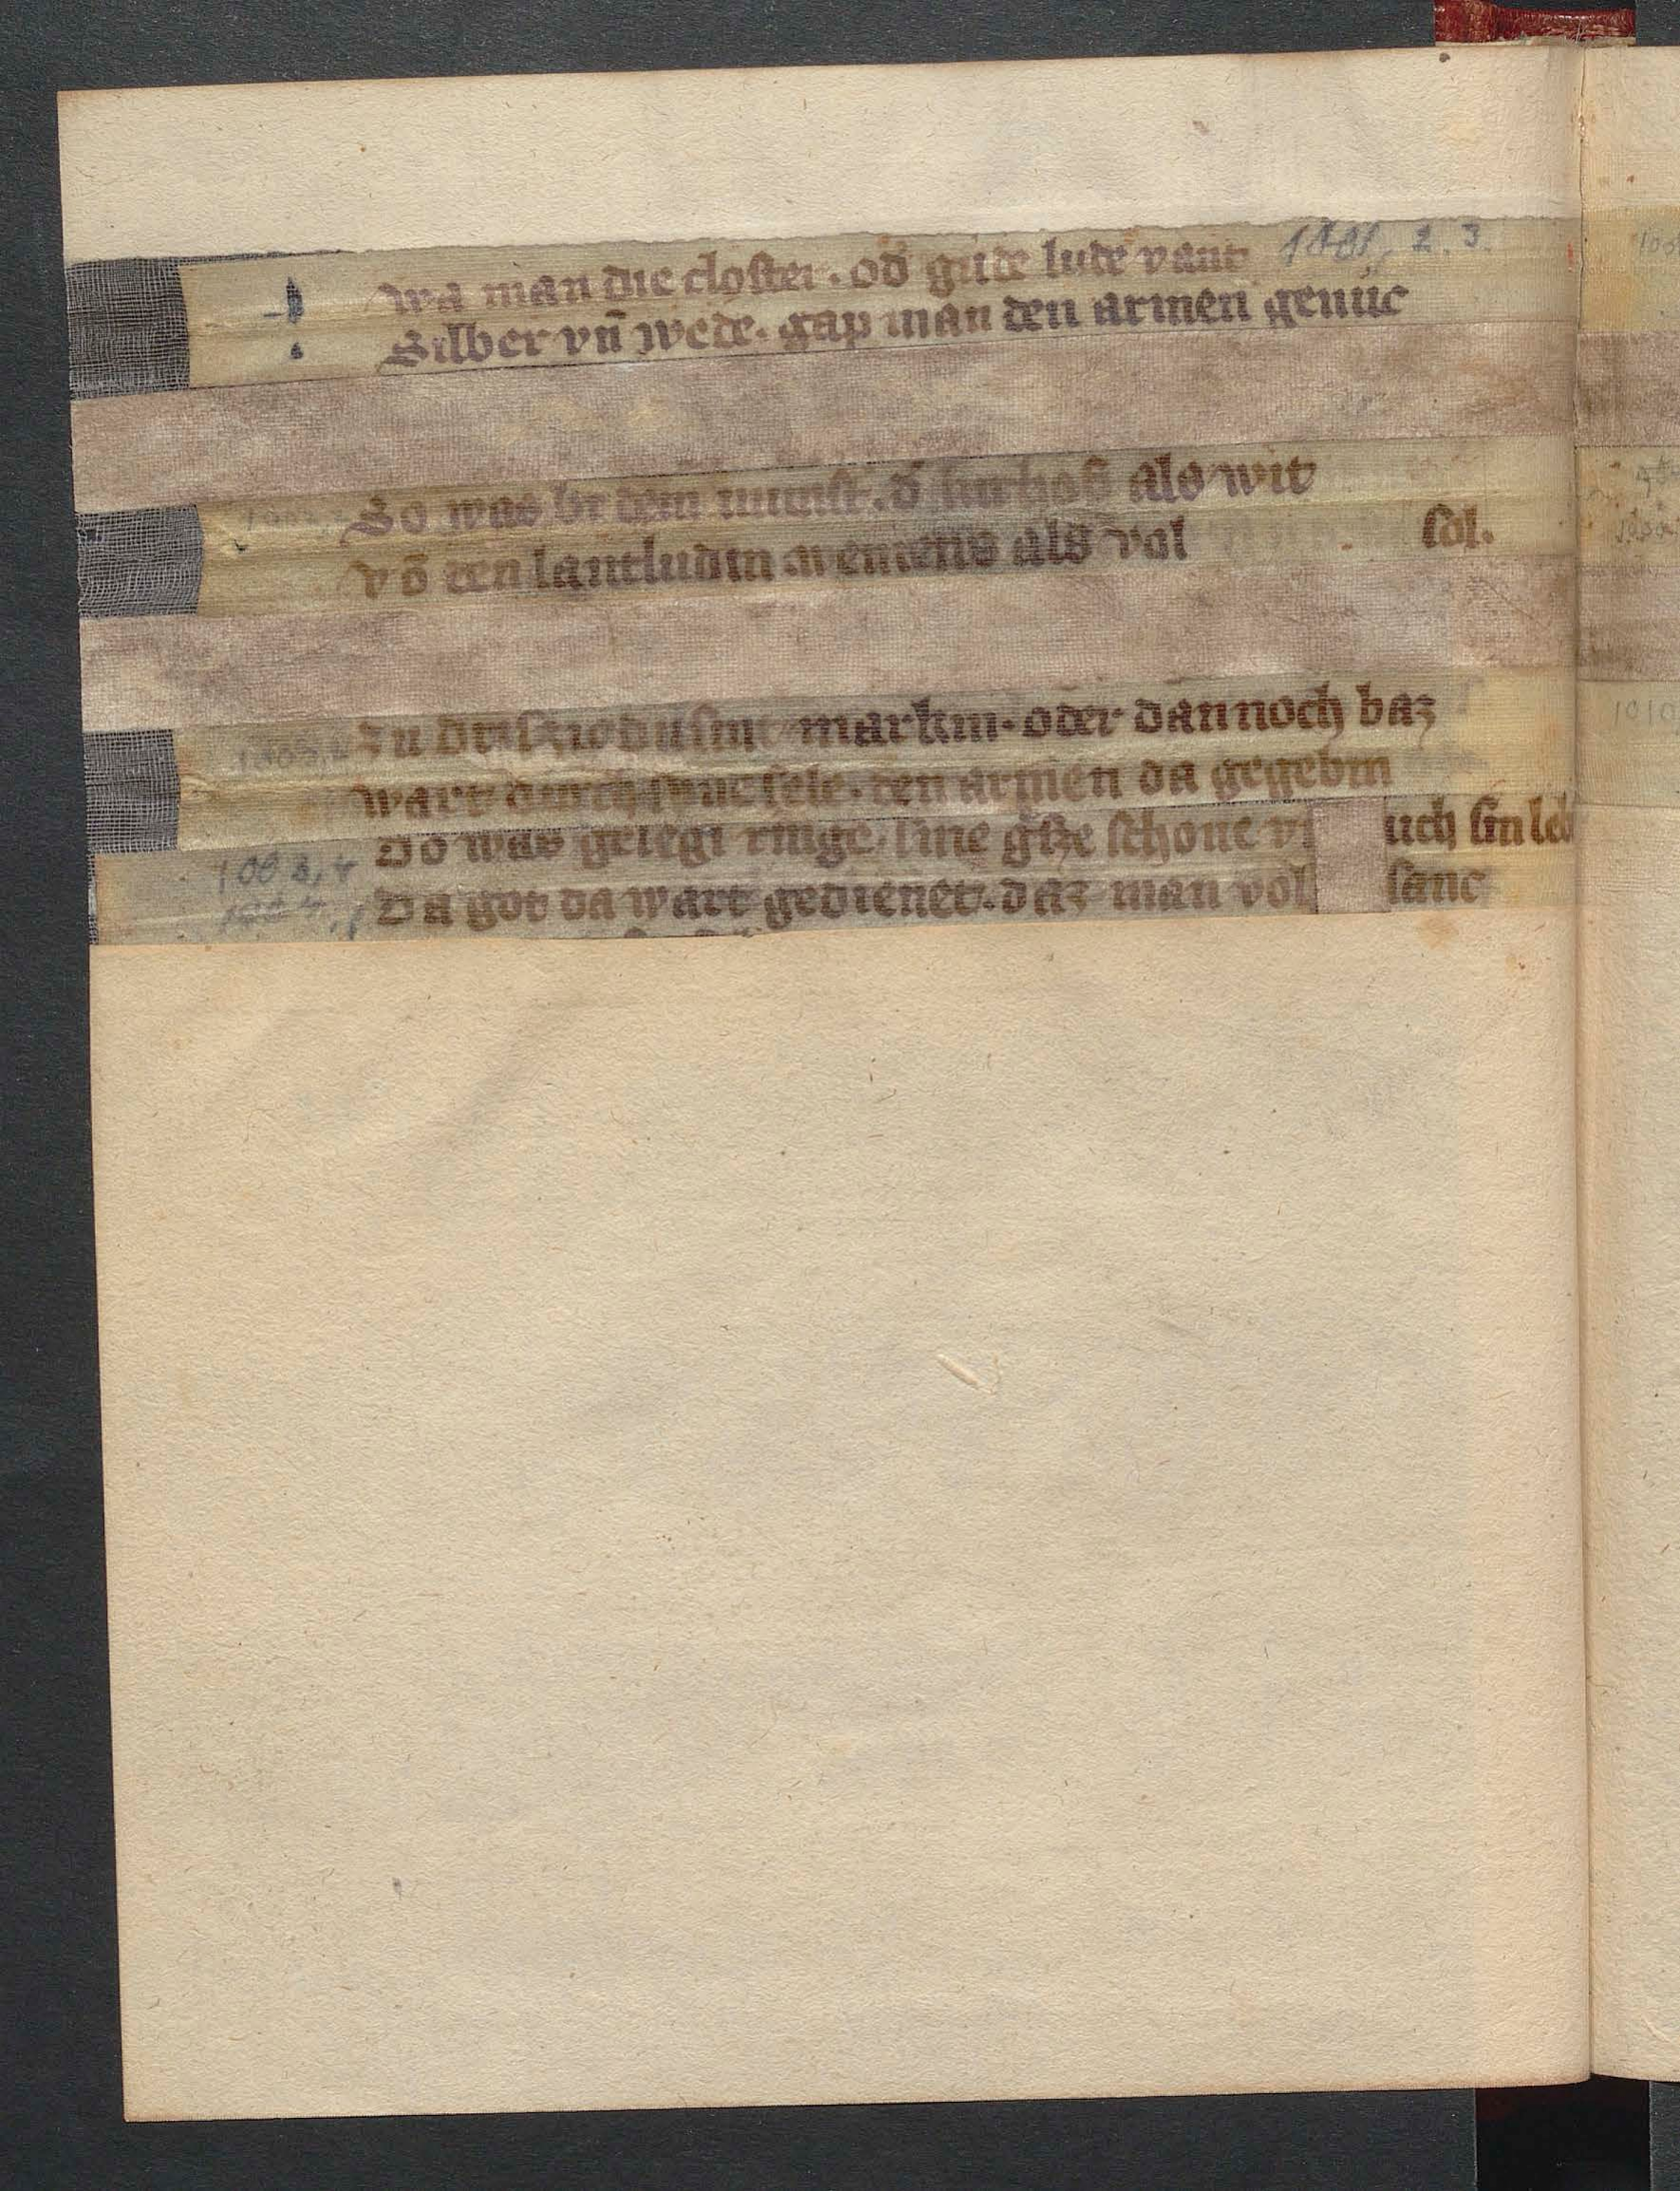 wa man die closter. od̄ gute lute vant 1001, 2. 3.
Silber vn̄ wede. gap man den armen genuc
So was bi dem munst. d̄ sin hof also wit
vō den lantludin als vol sol.
zu driszic dusint markin. oder dannoch baz
wart durch sine sele. den armen da gegebin
Do was gelegt ringe. sine schone uch sin leb
1003,4
Da got da wart gedienet. daz man vol sanc